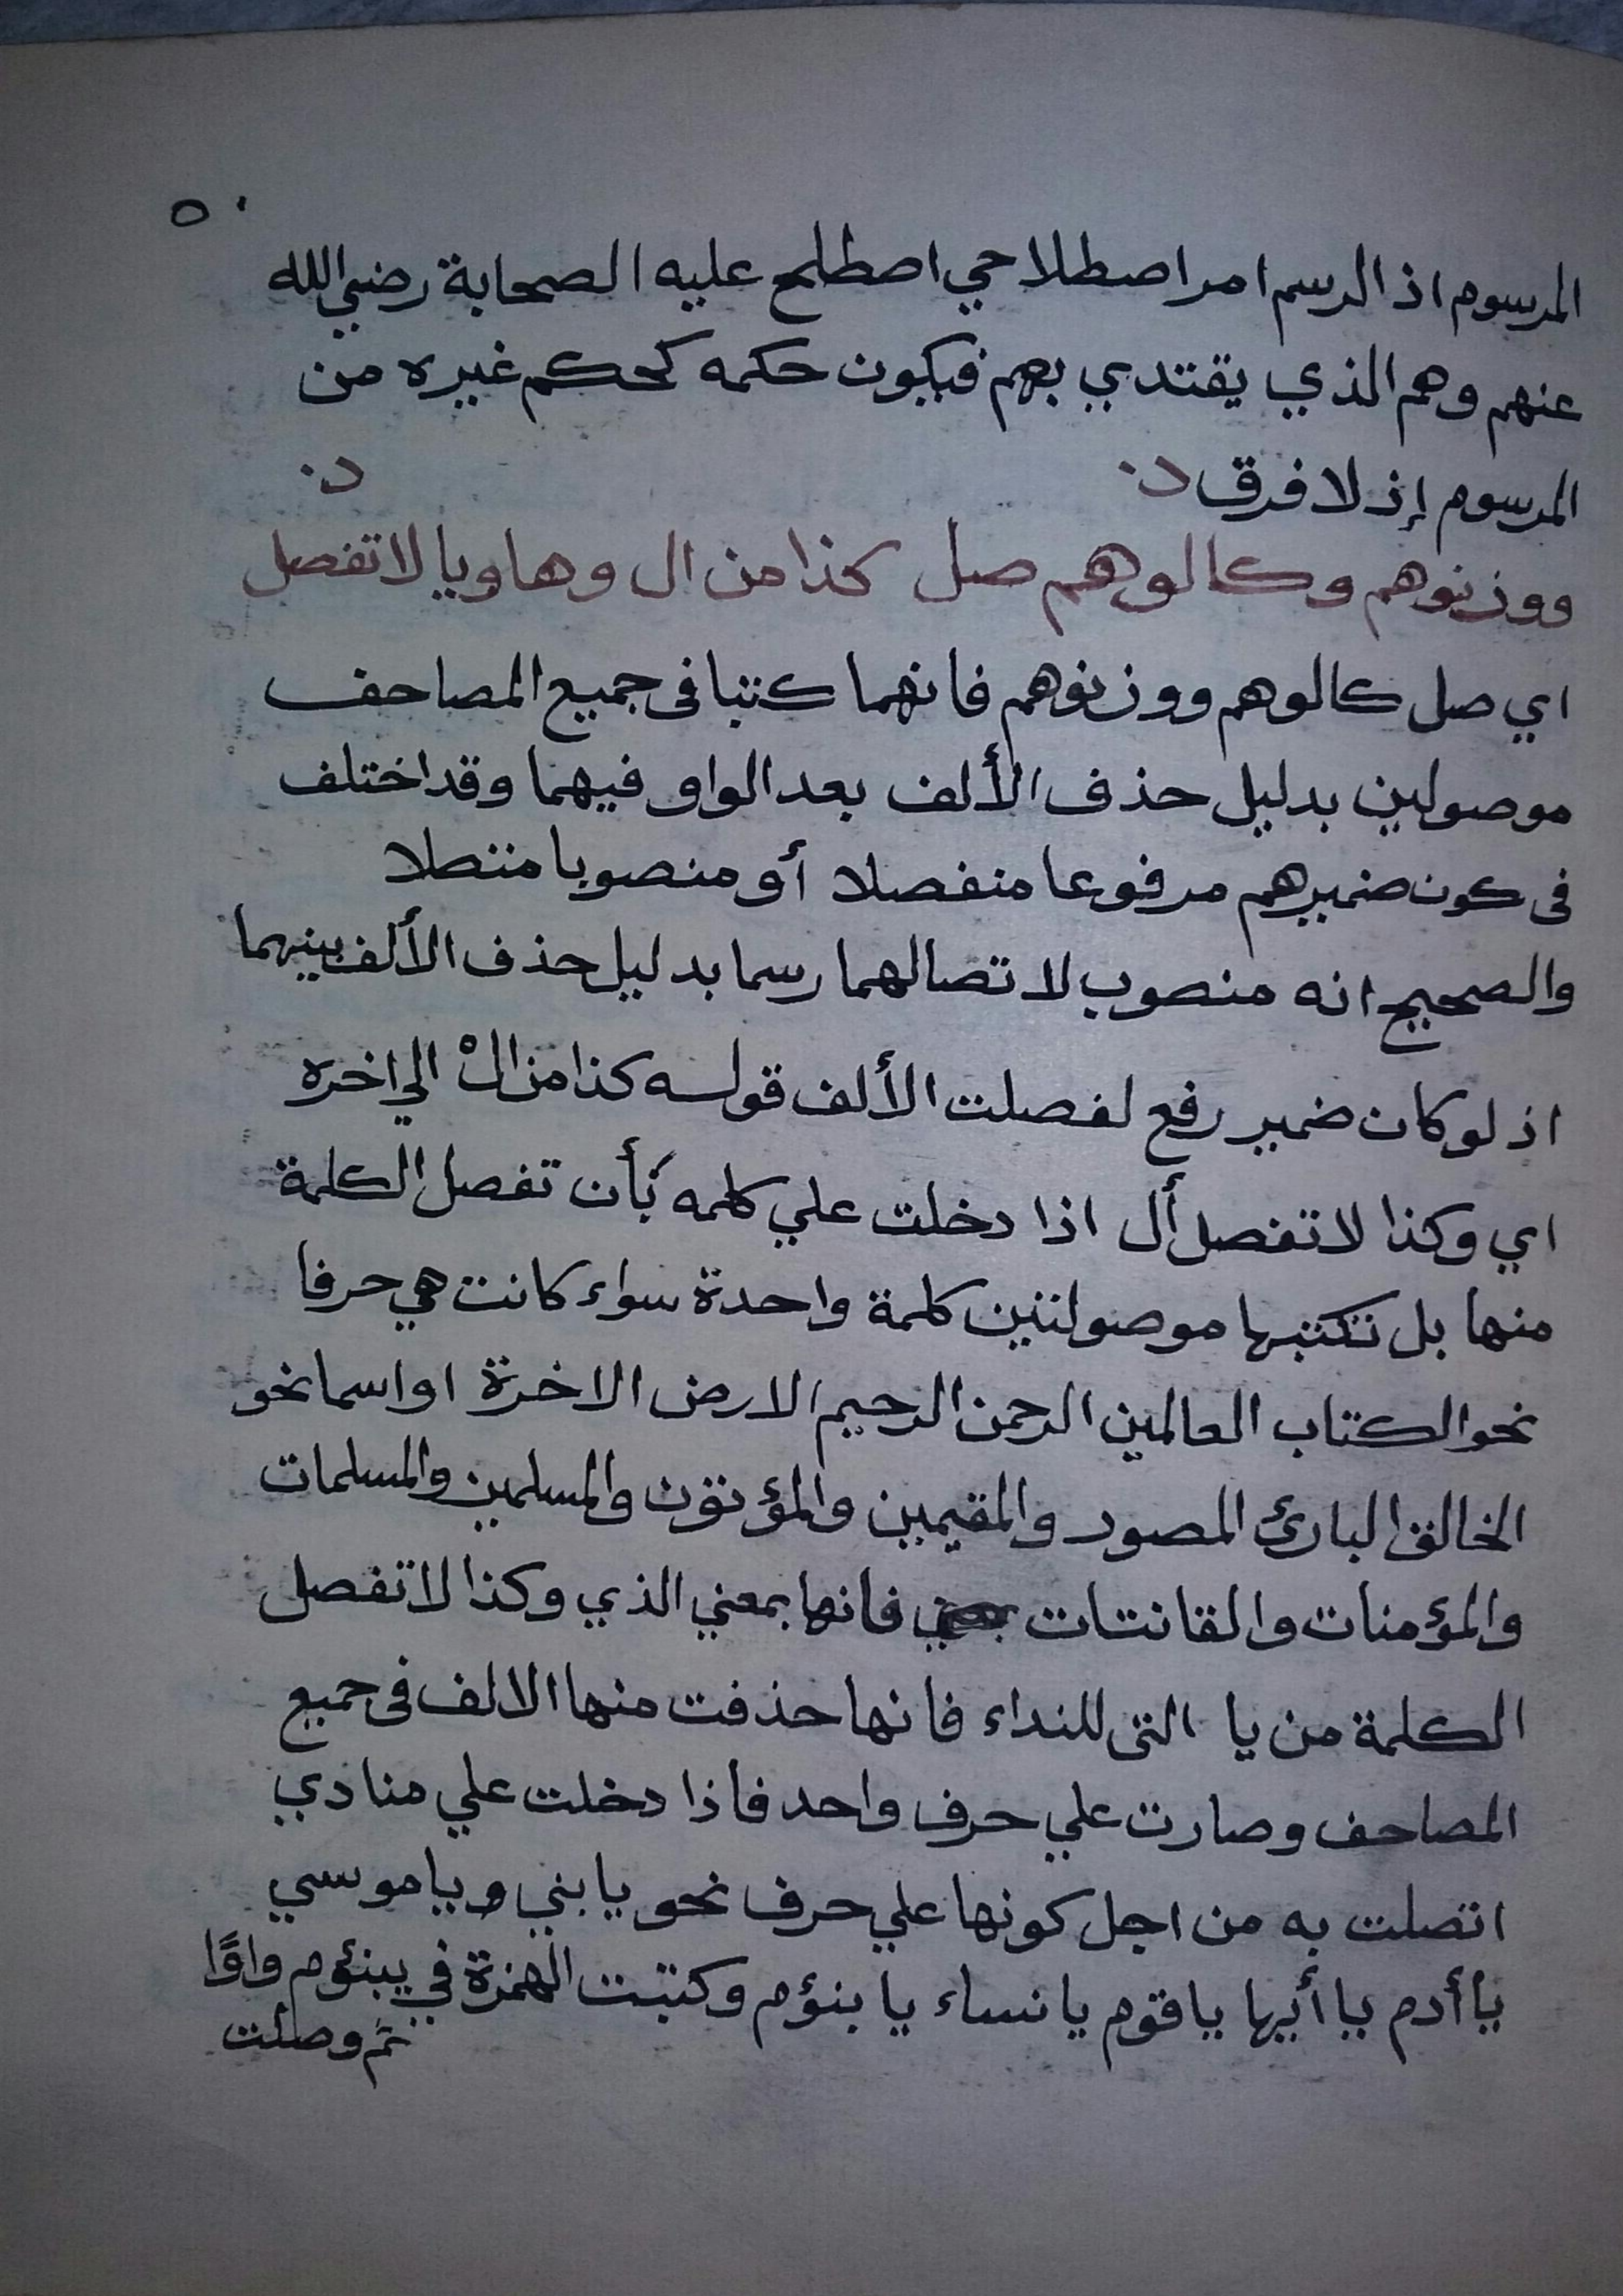 ٥٠
المرسوم اذ الرسم امر اصطلاحي اصطلح عليه الصحابة رضي الله
عنهم وهم الذي يقتدي بهم فيكون حكمه كحكم غيره من
المرسوم إذ لا فرق
ووزنوهم وكالوهم صل كذا من ال وها ويا لا تفصل
اي صل كالوهم ووزنوهم فانهما كتبا فى جميع المصاحف
موصولين بدليل حذف الألف بعد الواو فيهما وقد اختلف
فى كون ضميرهم مرفوعا منفصلا أو منصوبا متصلا
والصحيح انه منصوب لاتصالهما رسما بدليل حذف الألف بينهما
اذ لو كان ضمير رفع لفصلت الألف قوله كذا من الْ الي اخره
اي وكذا لا تفصل أل اذا دخلت علي كلمه بأن تفصل الكلمة
منها بل تكتبها موصولتين كلمة واحدة سواء كانت هي حرفا
نحو الكتاب العالمين الرحمن الرحيم الارض الاخرة او اسما نحو
الخالق البارئ المصور والمقيمين والمؤتون والمسلمين والمسلمات
والمؤمنات والقانتات فانها بمعني الذي وكذا لا تفصل
الكلمة من يا التى للنداء فانها حذفت منها الالف فى جميع
المصاحف وصارت علي حرف واحد فاذا دخلت علي منادي
اتصلت به من اجل كونها علي حرف نحو يا بني و يا موسي
يا أدم يا أيها يا قوم يا نساء يا بنؤم وكتبت الهمزة في يبنؤم واوًا
ثم وصلت